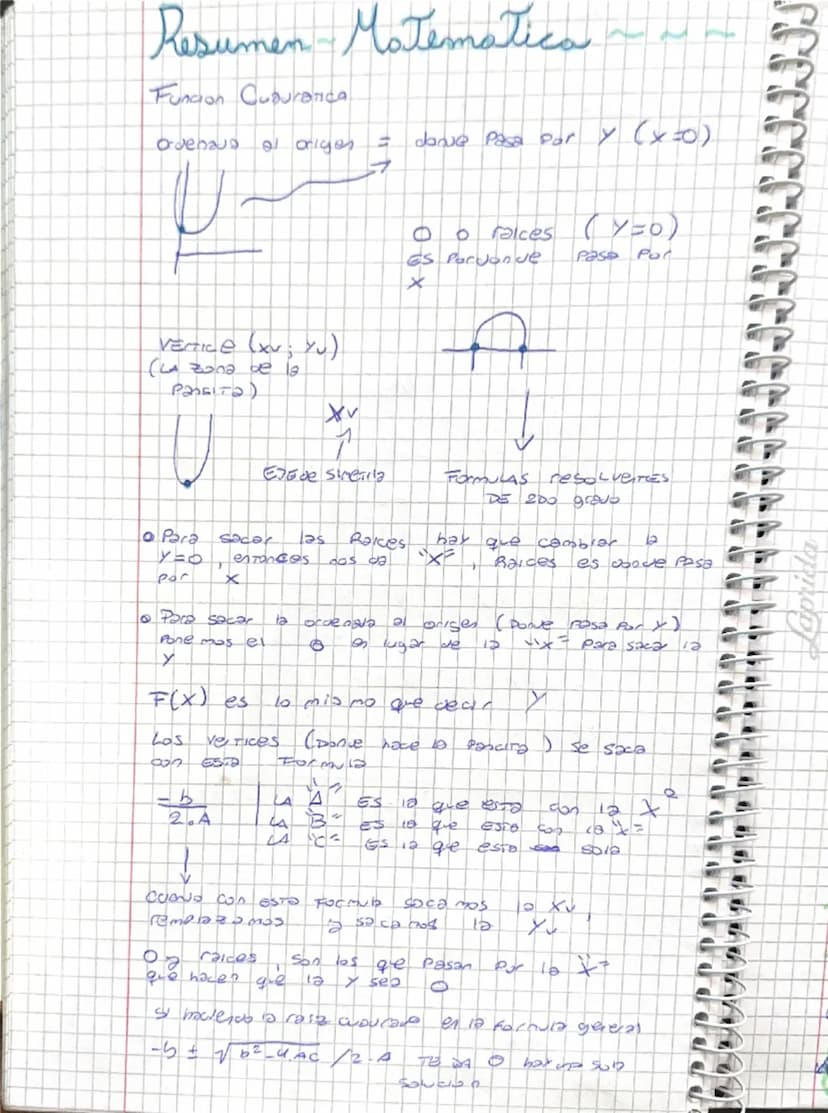 Resumen - Matematica ~ ~ ~
Funcion Cuadratica
ordenada al origen = donde pasa por y (x=0)
0 o raices (y=0)
Es por donde pasa por
x
VERTICE (xv; yv)
(LA zona de la
pansita)
Xv
EJE de simetria
FORMULAS resolventes
DE 2do grado
Para sacar las Raices hay que cambiar la
y=0, entonces nos da "x", Raices es donde pasa
por x
Para sacar la ordenada al origen (Donde pasa por y)
ponemos el 0 en lugar de la "x" para sacar la
y
F(x) es lo mismo que decir y
Los vertices (Donde hace la pancita) se saca
con esta Formula
-b / 2.A
LA "A" ES la que esta con la x²
LA "B" es la que esta con la "x"
LA "C" Es la que esta sola
cuando con esta Formula sacamos la Xv,
remplazamos y sacamos la Yv
0 y raices, son los que pasan por la "x"
que hacen que la y sea 0
si haciendo la raiz cuadrada en la formula general
-b ± √b²-4.AC /2.A TE DA 0 hay una sola
solucion
Laprida